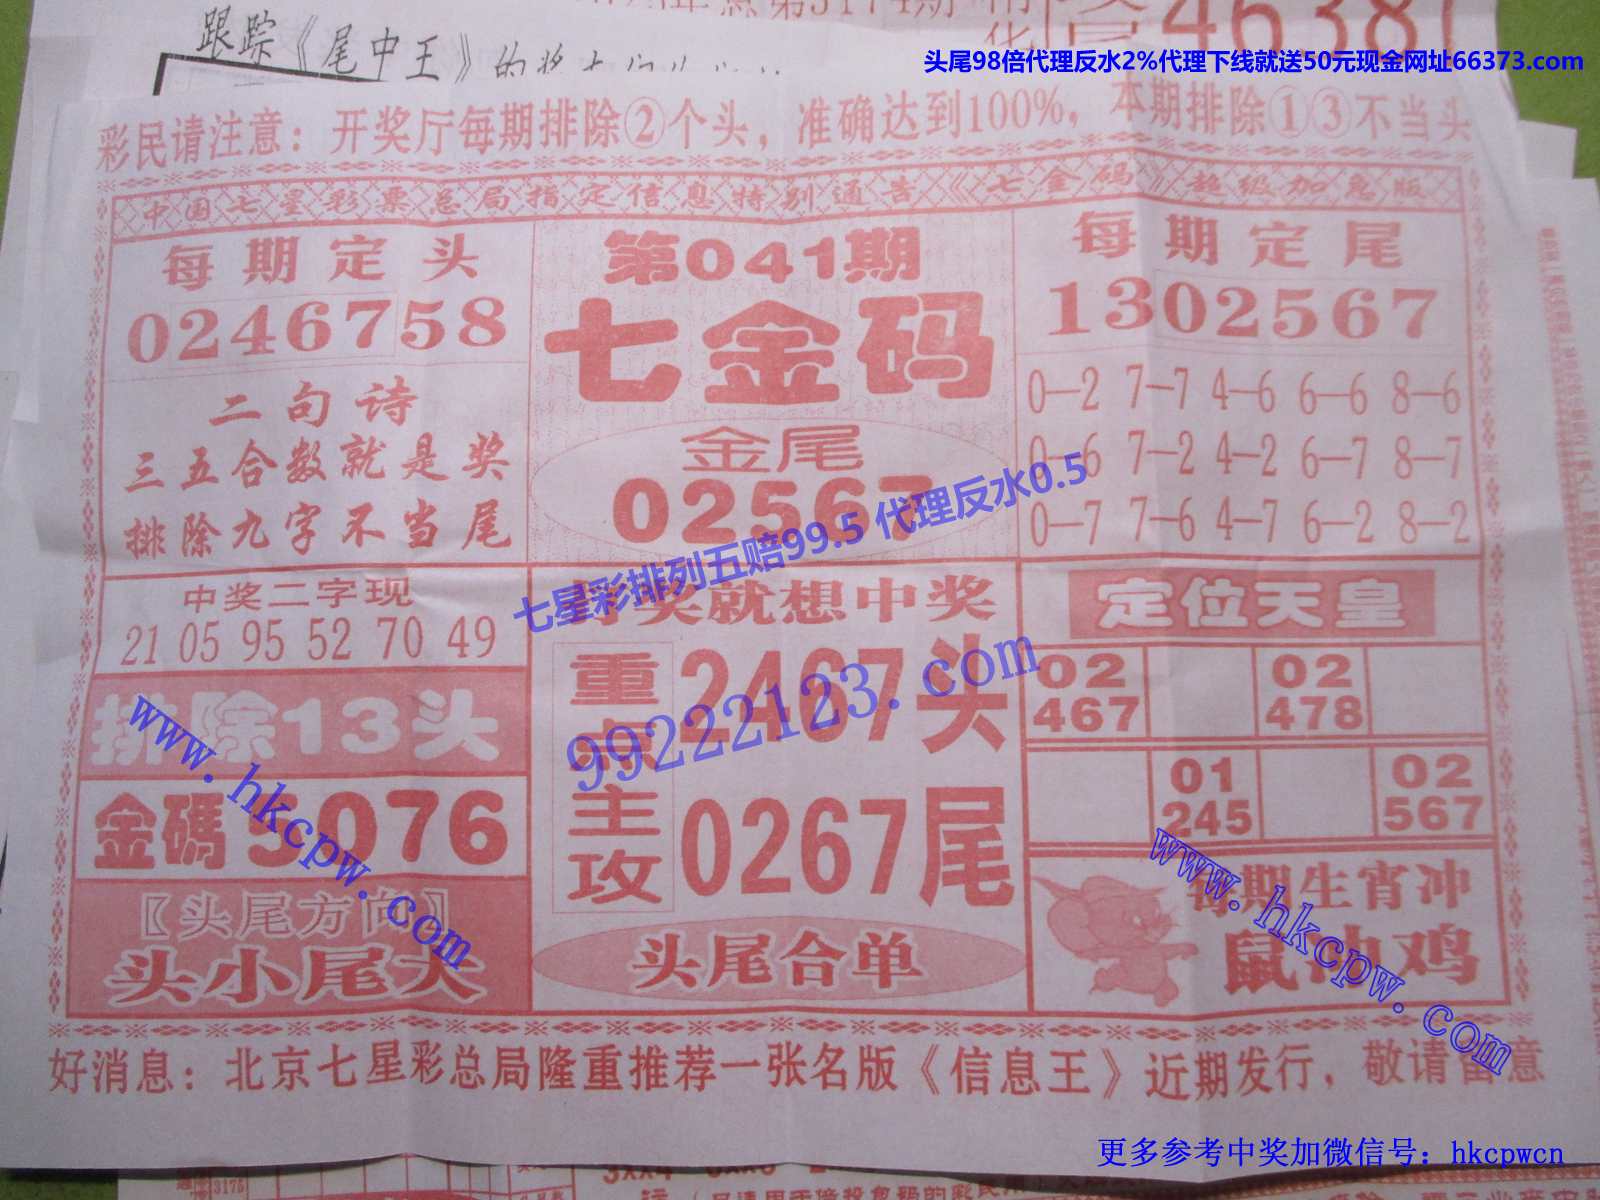 跟踪《尾中王》的奖
4638
头尾98倍代理反水2%代理下线就送50元现金网址66373.com
彩民请注意：开奖厅每期排除②个头，准确达到100%，本期排除①③不当头
中国七星彩票总局指定信息特别通告《七金码》超级加急版
每期定头
0246758
二句诗
三五合数就是奖
排除九字不当尾
第041期
七金码
金尾
02567
每期定尾
1302567
0—2 7—7 4—6 6—6 8—6
0—6 7—2 4—2 6—7 8—7
0—7 7—6 4—7 6—2 8—2
七星彩排列五赔99.5 代理反水0.5
中奖二字现
21 05 95 52 70 49
排除13头
金碼5076
〖头尾方向〗
头小尾大
奖就想中奖
重点主攻
2467头
0267尾
头尾合单
99222123.com
定位天皇
02 467
02 478
01 245
02 567
每期生肖冲
鼠冲鸡
www.hkcpw.com
www.hkcpw.com
好消息：北京七星彩总局隆重推荐一张名版《信息王》近期发行，敬请留意
更多参考中奖加微信号：hkcpwcn
3175